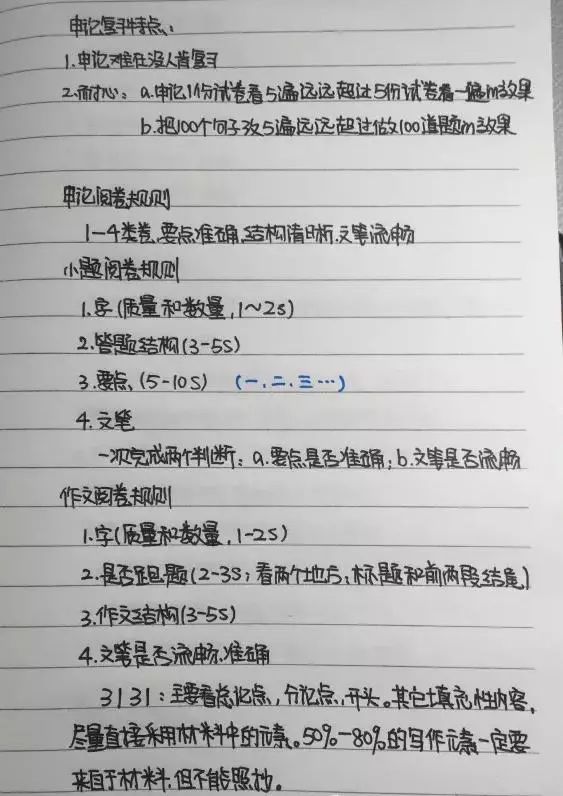 申论复习特点:
1.申论难在没人肯复习
2.耐心: a.申论1份试卷看5遍远远超过5份试卷看一遍的效果
b.把100个句子改5遍远远超过做100道题的效果
申论阅卷规则
1-4类卷,要点准确,结构清晰,文笔流畅
小题阅卷规则
1.字(质量和数量,1~2s)
2.答题结构(3-5s)
3.要点,(5-10s) (一、二、三…)
4.文笔
一次完成两个判断: a.要点是否准确; b.文笔是否流畅
作文阅卷规则
1.字(质量和数量,1-2s)
2.是否跑题(2-3s; 看两个地方:标题和前两段结尾)
3.作文结构(3-5s)
4.文笔是否流畅、准确
3131:主要看总论点,分论点,开头。其它填充性内容,
尽量直接采用材料中的元素。50%-80%的写作元素一定要
来自于材料,但不能照抄。